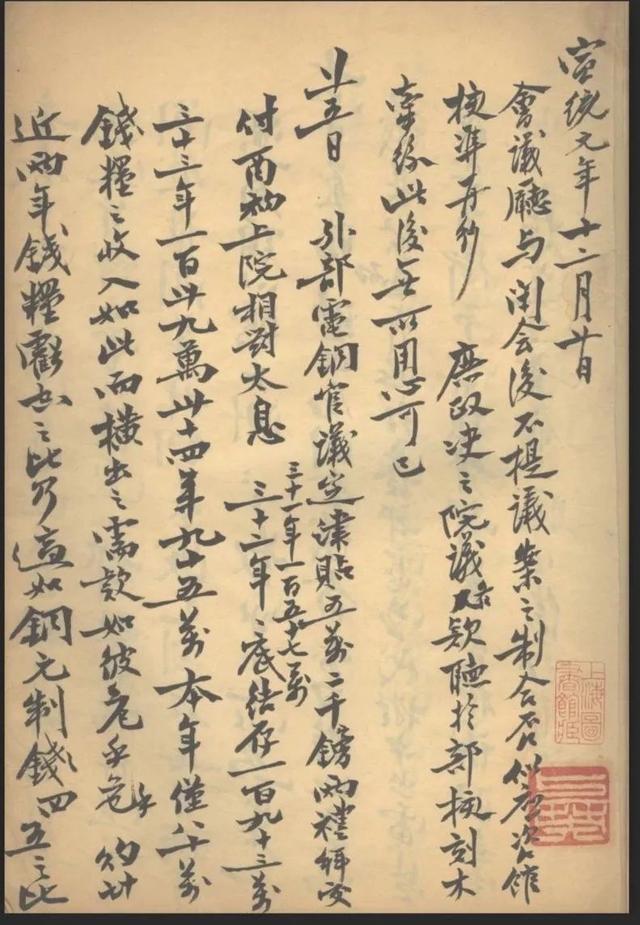 宣統元年十二月廿日
會議廳与開會後不提議案之制合否似應咨館
核準再行 庶政決之院議欵聽於部極刻木
牽絲此後無所用心可已
廿五日 外部電銅官議定津貼五萬二千鎊兩禮拜交
付 雨初上院相對太息 三十一年一百五十七萬
三十二年底結存一百九十三萬
三十三年一百卅九萬 卅十四年九十五萬 本年僅八十萬
錢糧之收入如此而橫出之需款如彼危乎危乎 約廿
近兩年錢糧虧空之比乃適如銅元制錢四五之比
上海圖書館藏